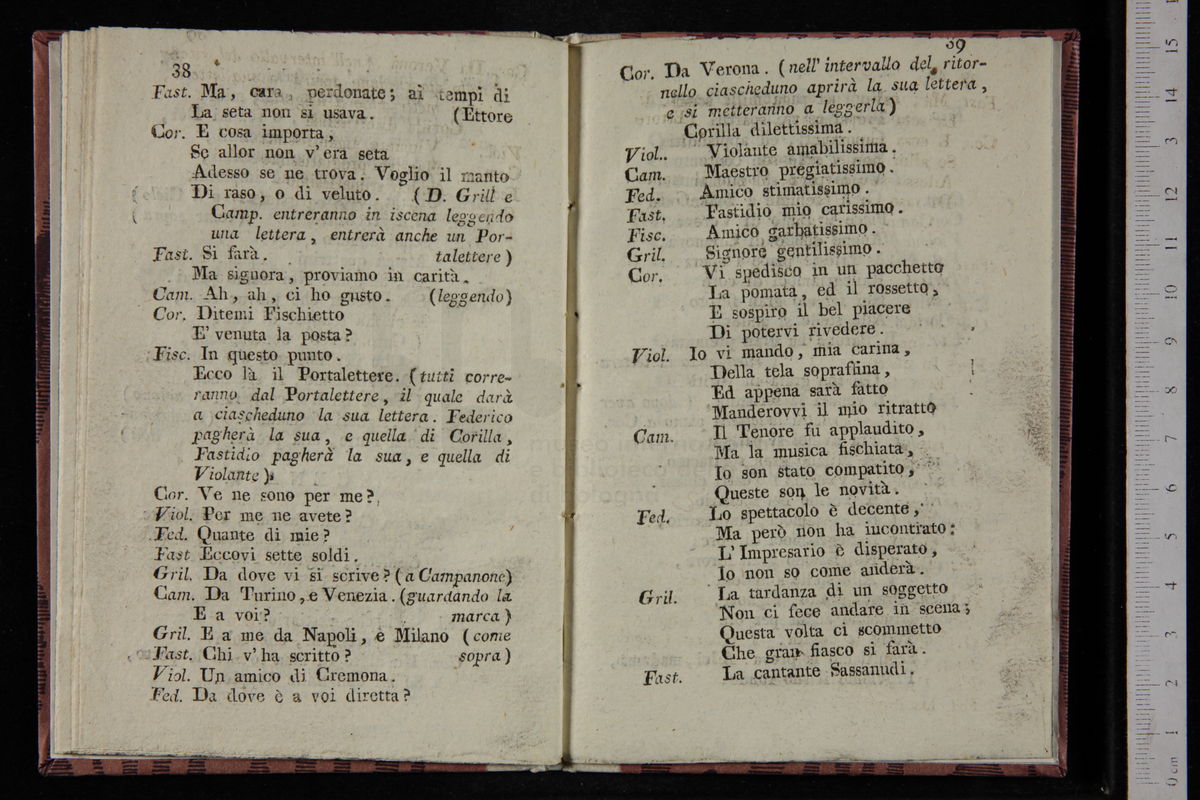 38
Fast. Ma, cara, perdonate; ai tempi di
La seta non si usava. (Ettore
Cor. E cosa importa,
Se allor non v'era seta
Adesso se ne trova. Voglio il manto
Di raso, o di veluto. (D. Grill e
Camp. entreranno in iscena leggendo
una lettera, entrerà anche un Por-
Fast. Si farà. talettere)
Ma signora, proviamo in carità.
Cam. Ah, ah, ci ho gusto. (leggendo)
Cor. Ditemi Fischietto
E' venuta la posta?
Fisc. In questo punto.
Ecco là il Portalettere. (tutti corre-
ranno dal Portalettere, il quale darà
a ciascheduno la sua lettera. Federico
pagherà la sua, e quella di Corilla,
Fastidio pagherà la sua, e quella di
Violante)
Cor. Ve ne sono per me?
Viol. Per me ne avete?
Fed. Quante di mie?
Fast. Eccovi sette soldi.
Gril. Da dove vi si scrive? (a Campanone)
Cam. Da Turino, e Venezia. (guardando la
E a voi? marca)
Gril. E a me da Napoli, e Milano (come
Fast. Chi v'ha scritto? sopra)
Viol. Un amico di Cremona.
Fed. Da dove è a voi diretta?
39
Cor. Da Verona. (nell' intervallo del ritor-
nello ciascheduno aprirà la sua lettera,
e si metteranno a leggerla)
Corilla dilettissima.
Viol.. Violante amabilissima.
Cam. Maestro pregiatissimo.
Fed. Amico stimatissimo.
Fast. Fastidio mio carissimo.
Fisc. Amico garbatissimo.
Gril. Signore gentilissimo.
Cor. Vi spedisco in un pacchetto
La pomata, ed il rossetto,
E sospiro il bel piacere
Di potervi rivedere.
Viol. Io vi mando, mia carina,
Della tela sopraffina,
Ed appena sarà fatto
Manderovvi il mio ritratto
Cam. Il Tenore fu applaudito,
Ma la musica fischiata,
Io son stato compatito,
Queste son le novità.
Fed. Lo spettacolo è decente,
Ma però non ha incontrato:
L'Impresario è disperato,
Io non so come anderà.
Gril. La tardanza di un soggetto
Non ci fece andare in scena;
Questa volta ci scommetto
Che gran fiasco si farà.
Fast. La cantante Sassanudi.